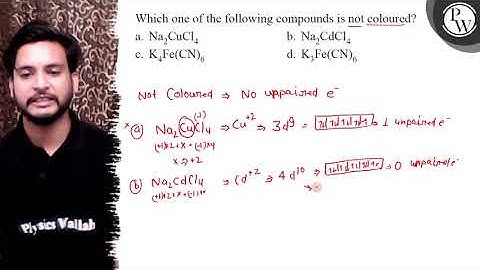 Which one of the following compounds is not coloured?
a. Na₂CuCl₄ b. Na₂CdCl₄
c. K₄Fe(CN)₆ d. K₃Fe(CN)₆
PW
Not Coloured ⇒ No unpaired e⁻
(-1)
x (a) Na₂CuCl₄ ⇒ Cu⁺² ⇒ 3d⁹ ⇒ → 1 unpaired e⁻
(+1)×2 + x + (-1)×4
x = +2
(b) Na₂CdCl₄ ⇒ Cd⁺² ⇒ 4d¹⁰ ⇒ → 0 unpaired e⁻
(+1)×2 + x + (-1)×4
Physics Wallah